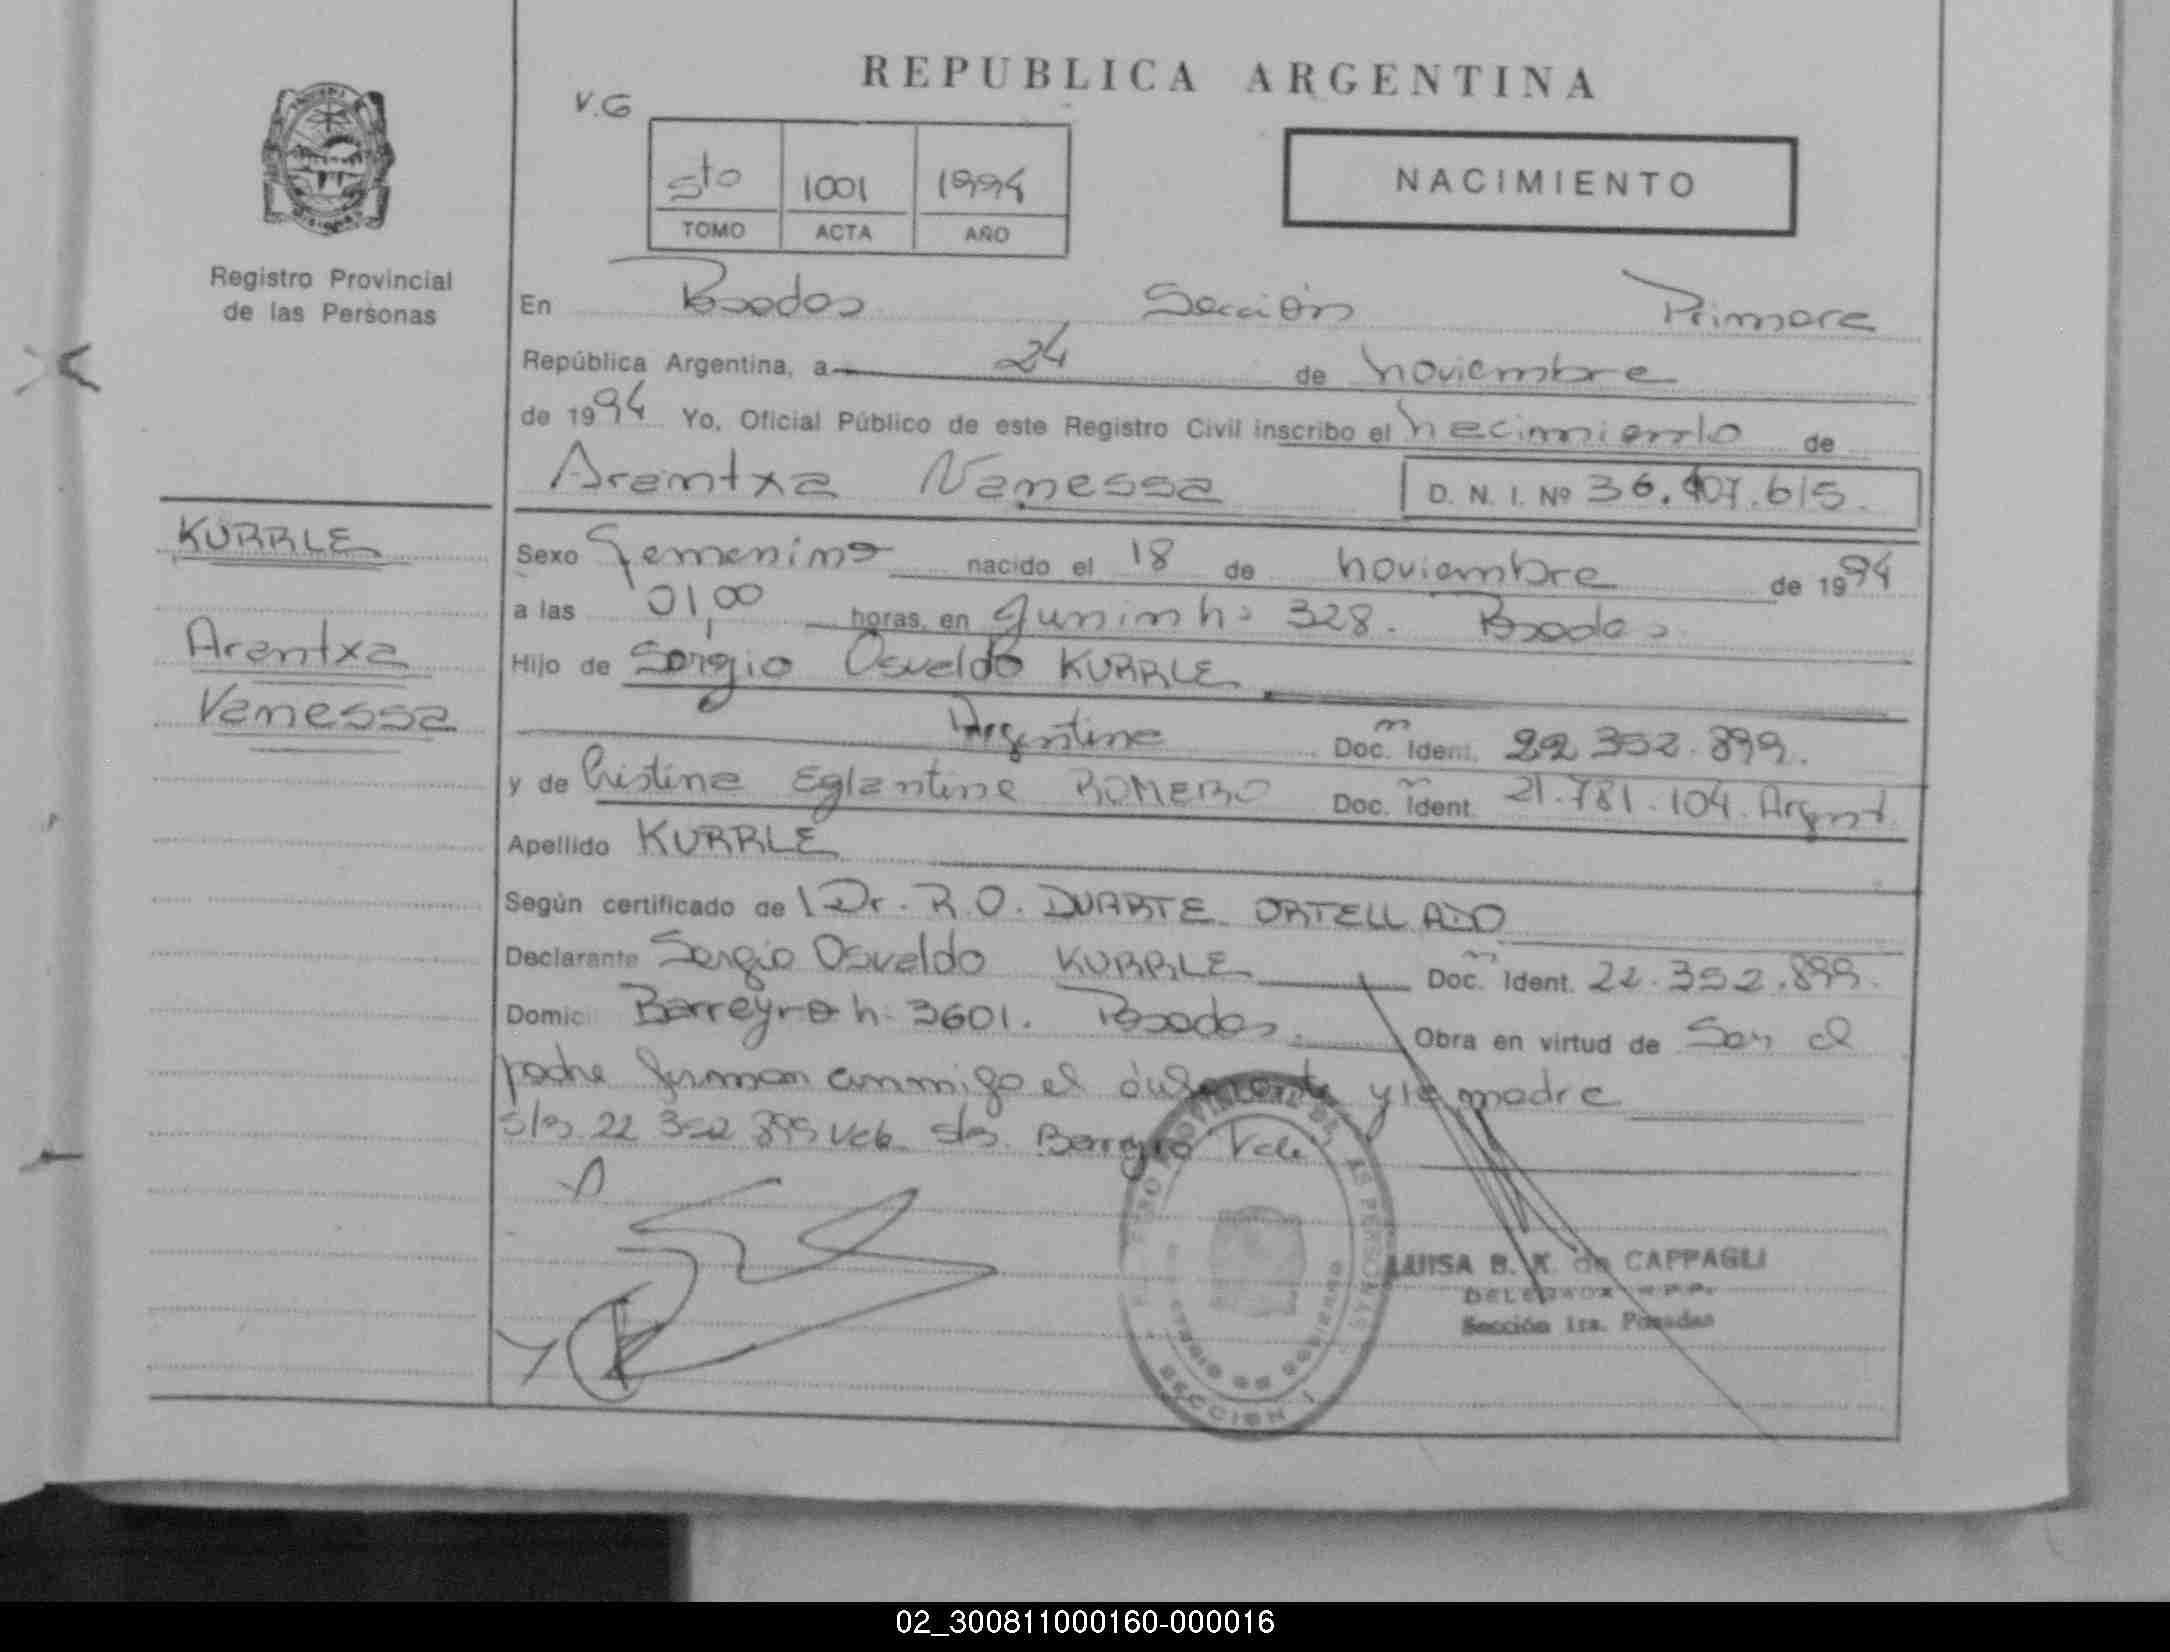 REPUBLICA ARGENTINA
V.G
5to 1001 1994
TOMO ACTA AÑO
NACIMIENTO
Registro Provincial
de las Personas
En Posadas Sección Primera
República Argentina, a 24 de noviembre
de 1994 Yo, Oficial Público de este Registro Civil inscribo el nacimiento de
Arantxa Vanessa D. N. I. Nº 36.407.615.
KURRLE
Arantxa
Vanessa
Sexo Femenino nacido el 18 de noviembre de 1994
a las 01,00 horas, en Junin nº 328. Posadas
Hijo de Sergio Osvaldo KURRLE
Argentina Doc. Ident. 22 352.899.
y de Cristina Eglantina ROMERO Doc. Ident. 21.781.104. Argent
Apellido KURRLE
Según certificado de Dr. R.O. DUARTE ORTELLADO
Declarante Sergio Osvaldo KURRLE Doc. Ident. 22.352.899.
Domic. Barreyro n. 3601. Posadas. Obra en virtud de Ser el
padre firman conmigo el y la madre
s/r 22 352 899 Vale s/r Barreyro Vale
LUISA B. K. de CAPPAGLI
DELEGADA R.P.P.
Sección 1ra. Posadas
SECCION 1
02_300811000160-000016